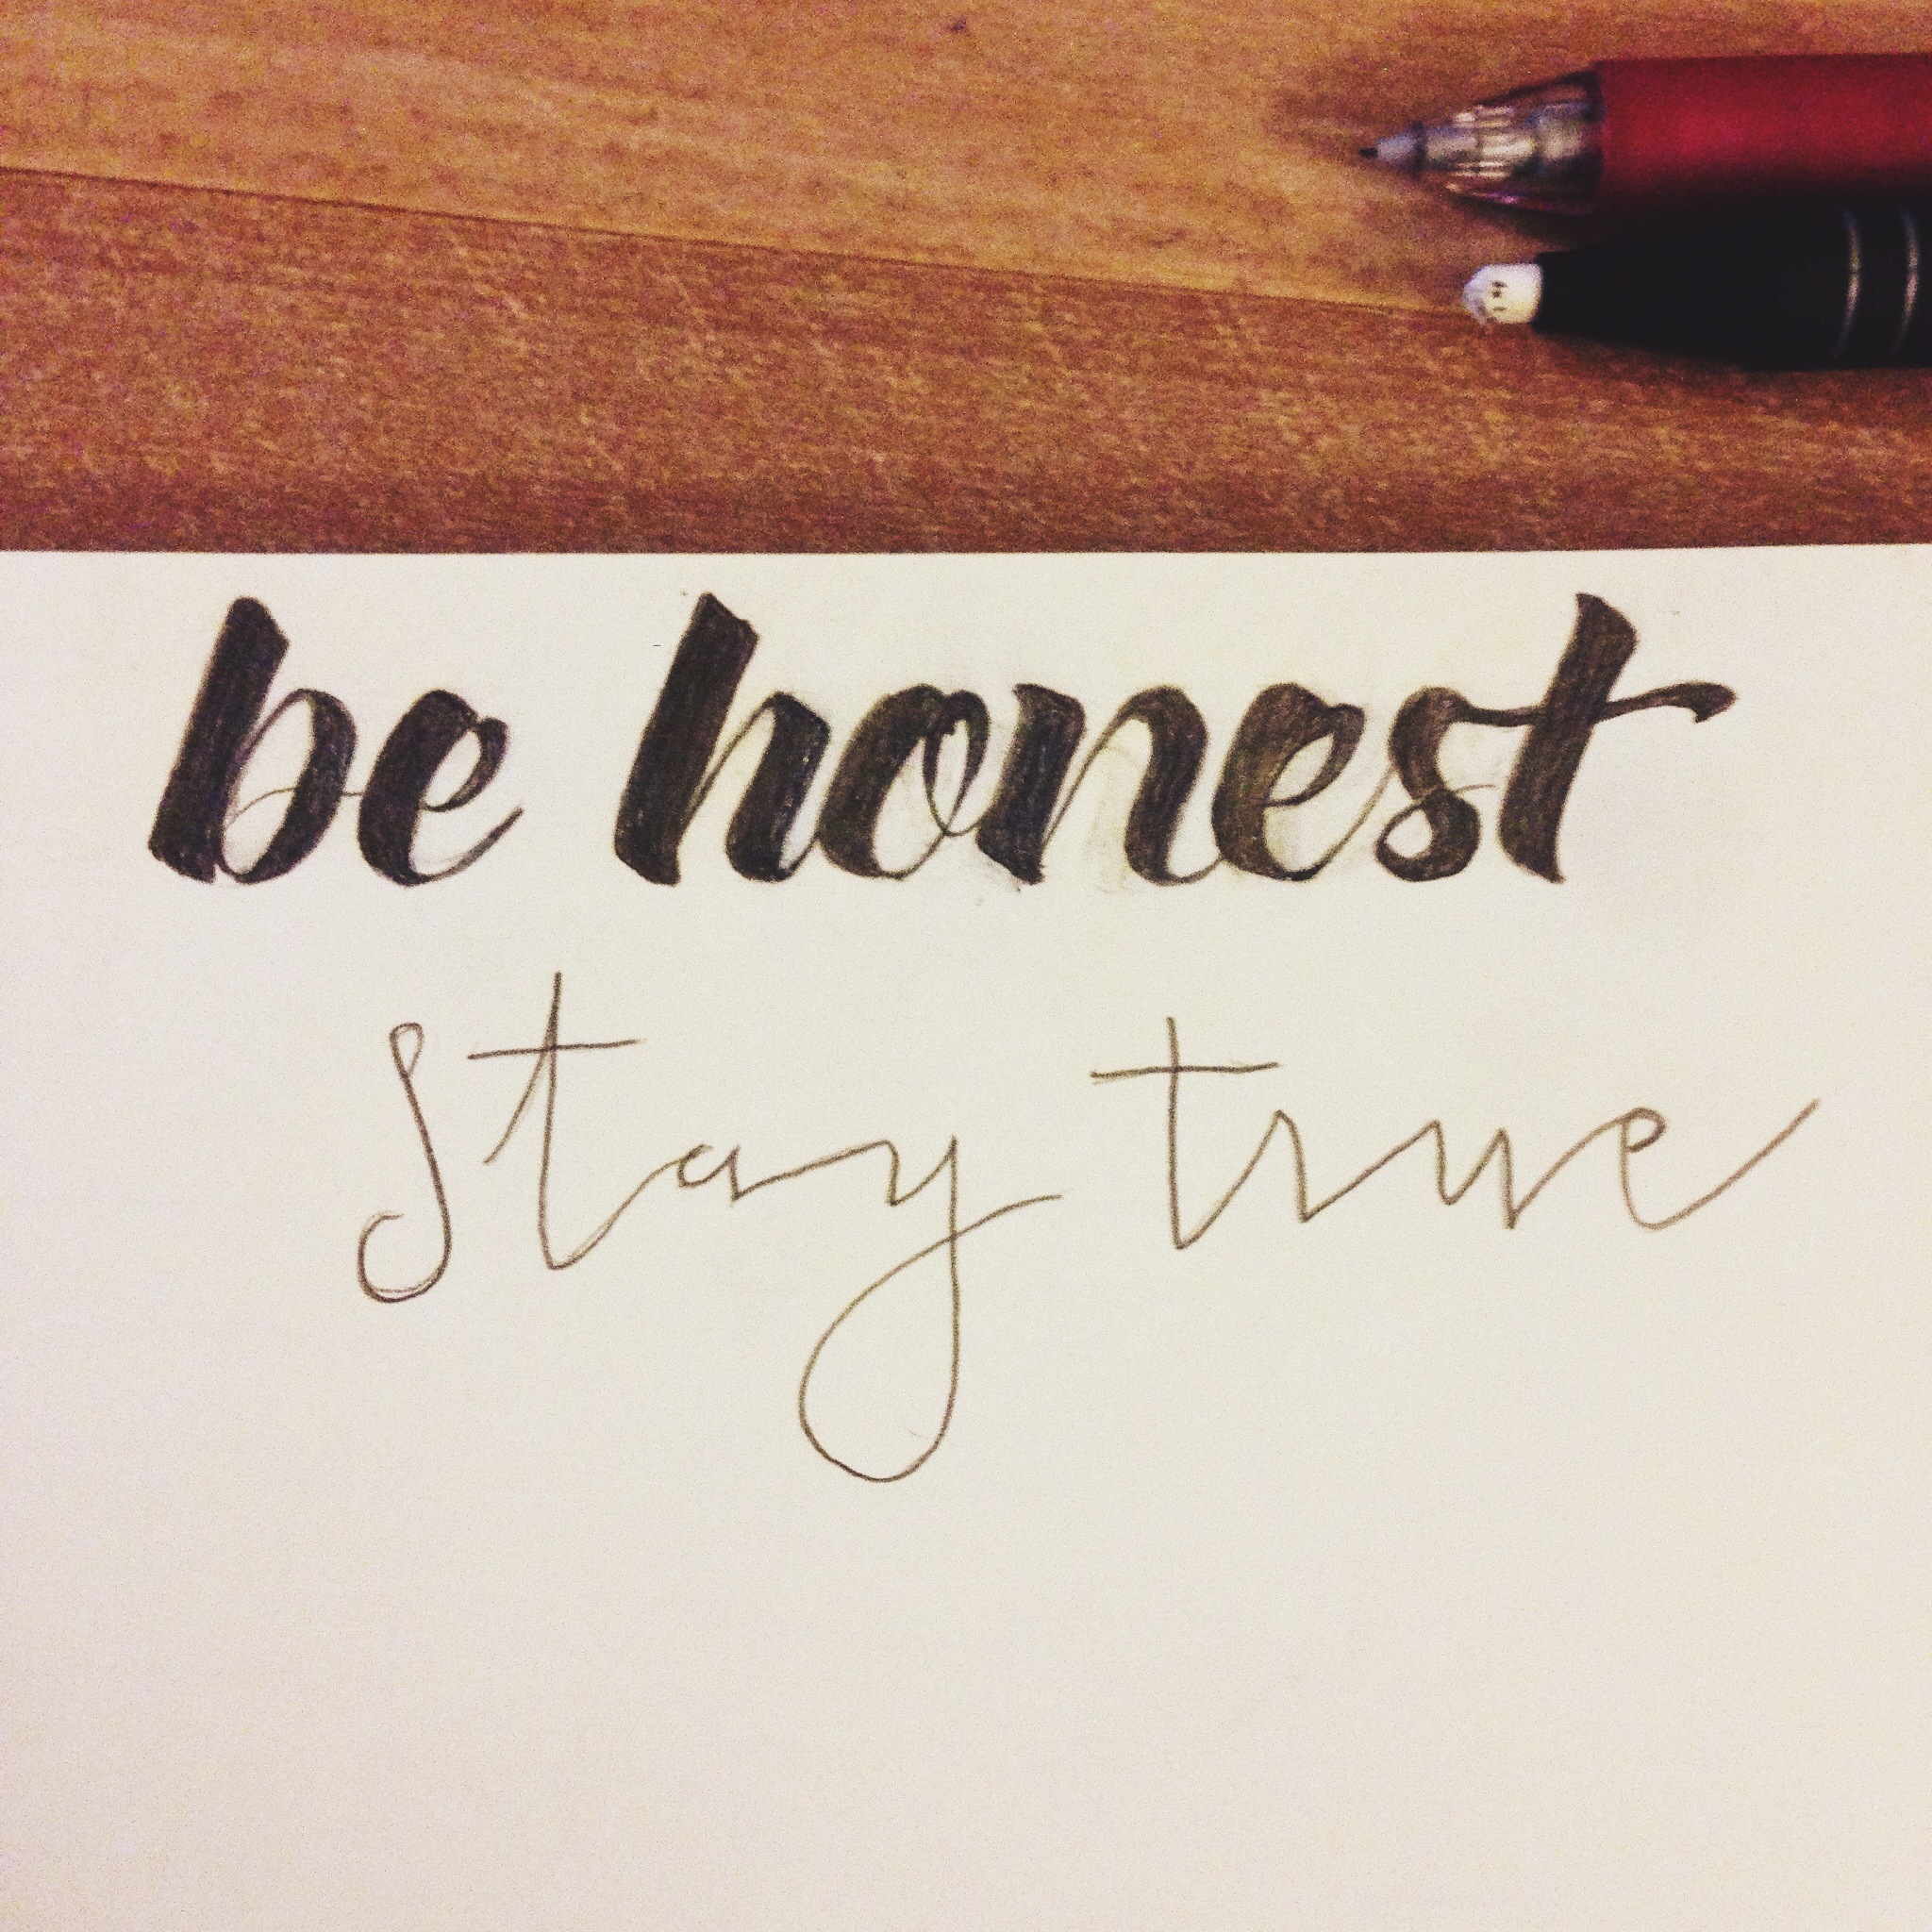 be honest
Stay true